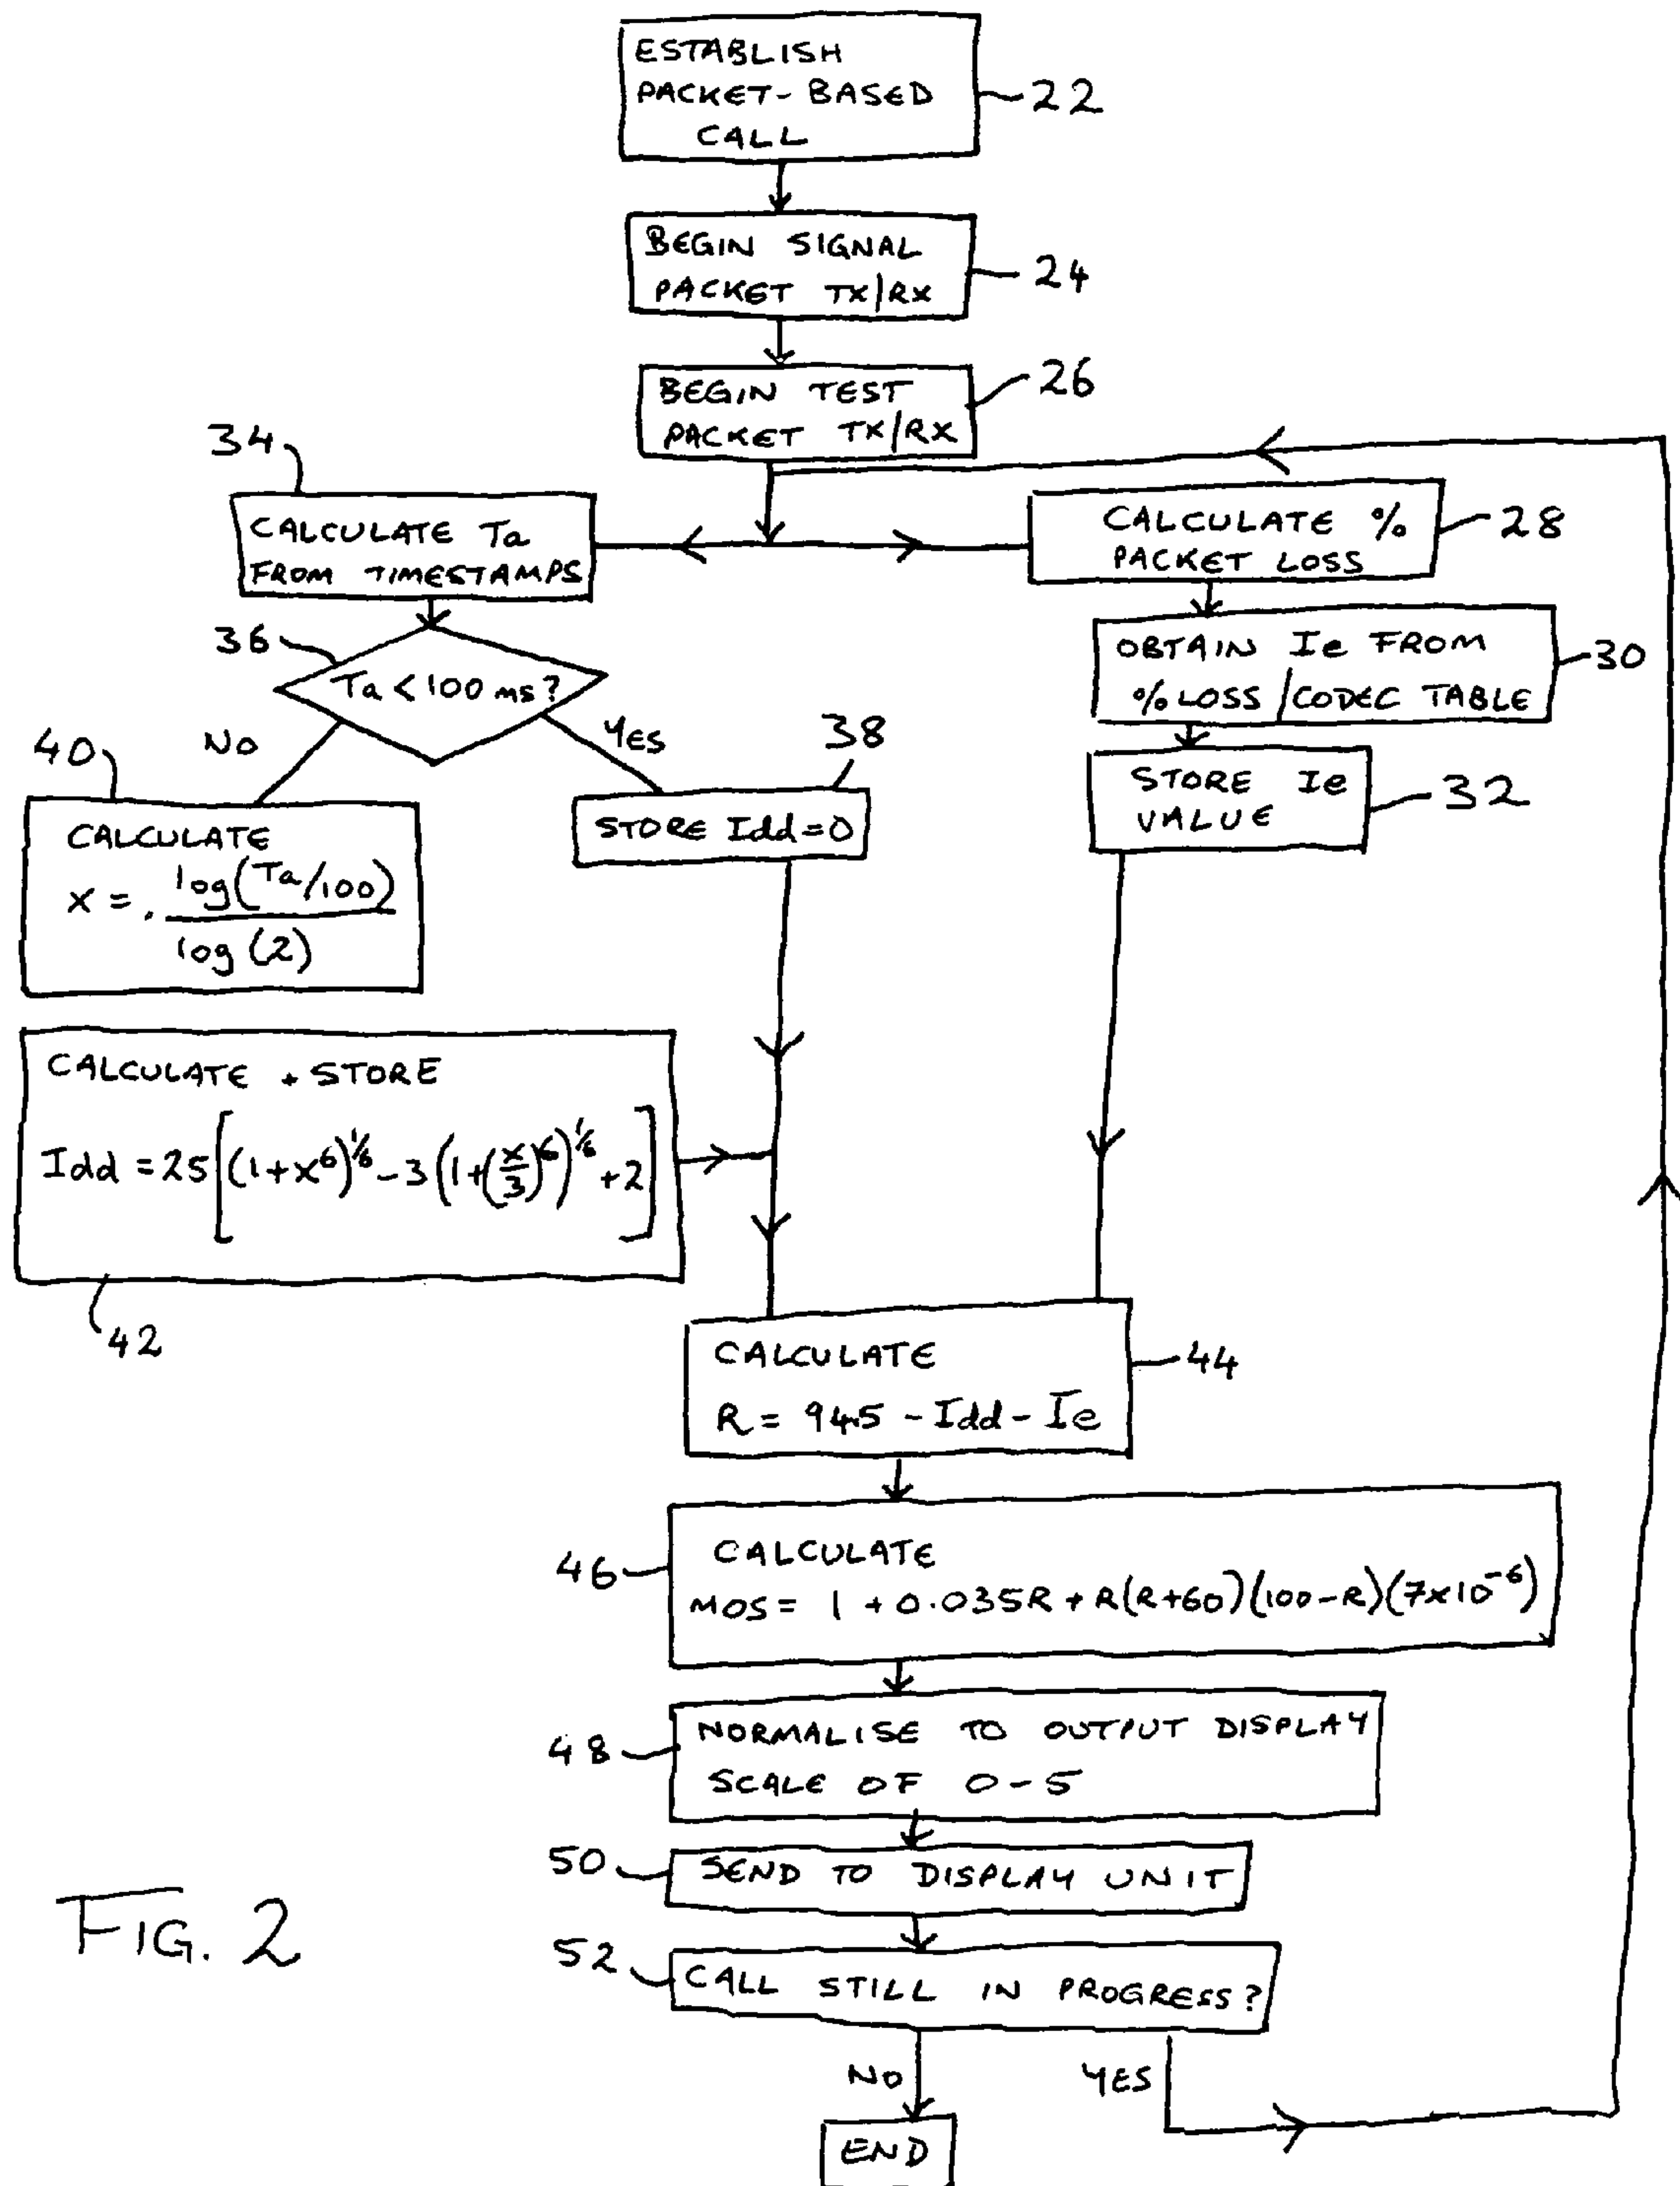 ESTABLISH
PACKET-BASED
CALL
22
BEGIN SIGNAL
PACKET TX/RX
24
BEGIN TEST
PACKET TX/RX
26
34
CALCULATE Ta
FROM TIMESTAMPS
CALCULATE %
PACKET LOSS
28
36
Ta < 100 ms?
OBTAIN Ie FROM
% LOSS / CODEC TABLE
30
NO
YES
40
38
CALCULATE
x = log(Ta/100)
log (2)
STORE Idd = 0
STORE Ie
VALUE
32
CALCULATE + STORE
Idd = 25[(1+x^6)^1/6 - 3(1+(x/3)^6)^1/6 + 2]
42
CALCULATE
R = 94.5 - Idd - Ie
44
46
CALCULATE
MOS = 1 + 0.035R + R(R+60)(100-R)(7x10^-6)
48
NORMALISE TO OUTPUT DISPLAY
SCALE OF 0-5
50
SEND TO DISPLAY UNIT
52
CALL STILL IN PROGRESS?
NO
YES
END
FIG. 2